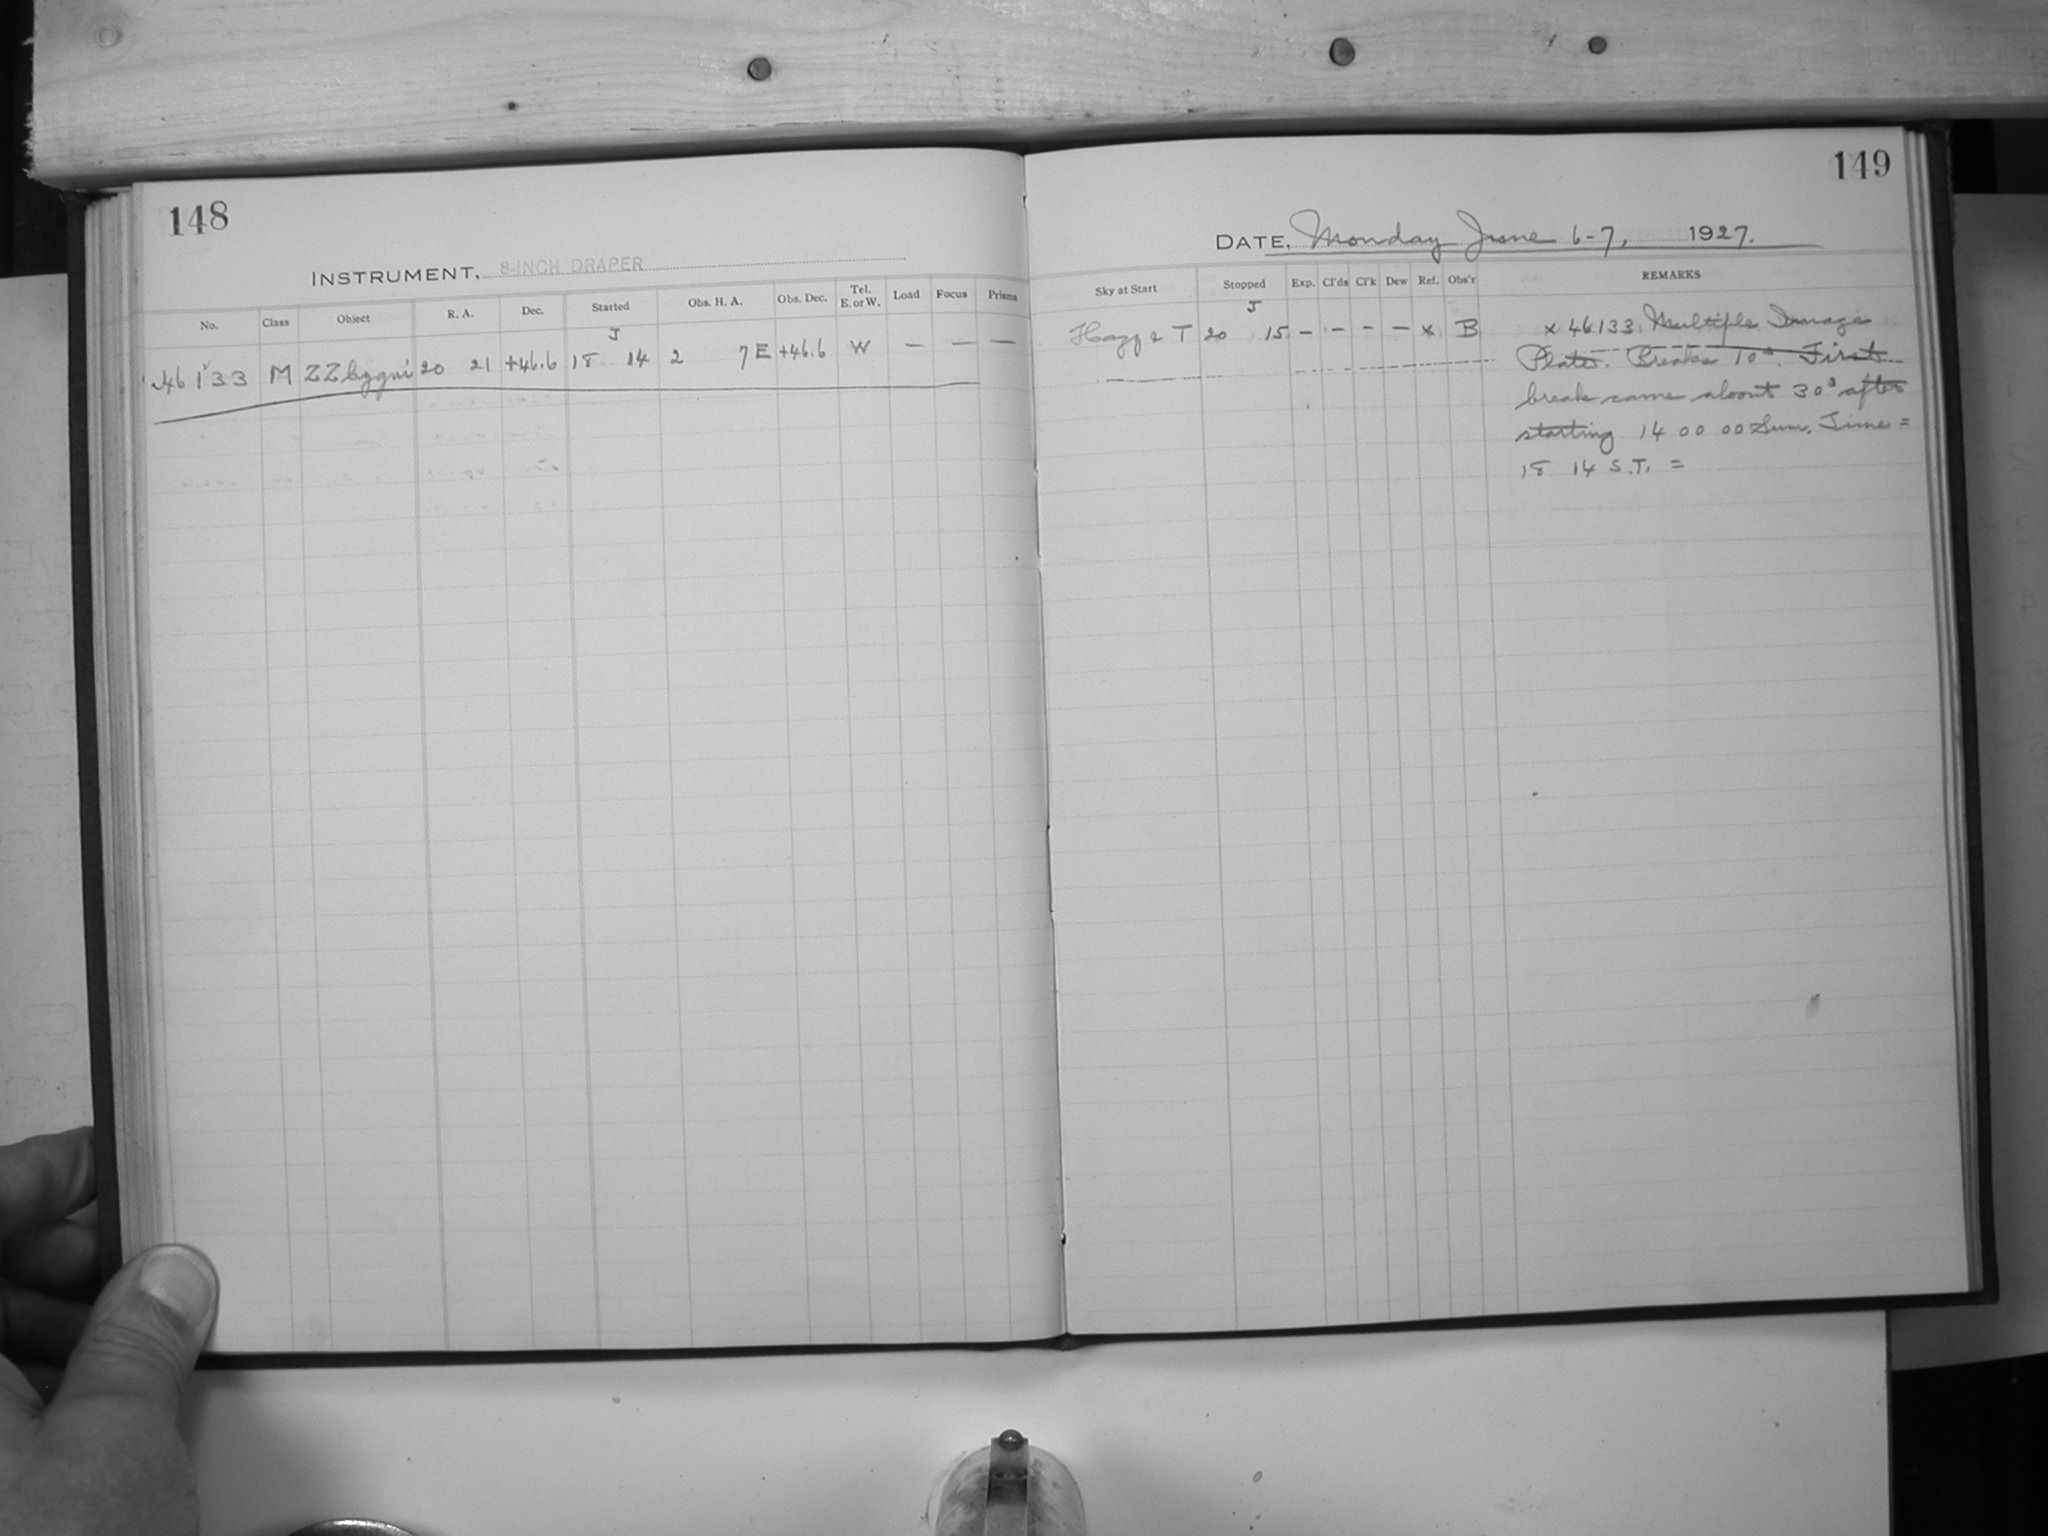 148
INSTRUMENT, 8-INCH DRAPER
No. Class Object R. A. Dec. Started Obs. H. A. Obs. Dec. Tel. E. or W. Load Focus Prisms
J
46133 M ZZ Cygni 20 21 +46.6 18 14 2 7 E +46.6 W — — —
149
DATE, Monday June 6-7, 1927.
Sky at Start Stopped Exp. Cl'ds Cl'k Dew Ref. Obs'r REMARKS
J
Hazy & T 20 15 — — — — x B
x 46133 Multiple Image
Plate. Breaks 10s. First
break came about 30s after
starting 14 00 00 Sum. Time =
18 14 S.T. =